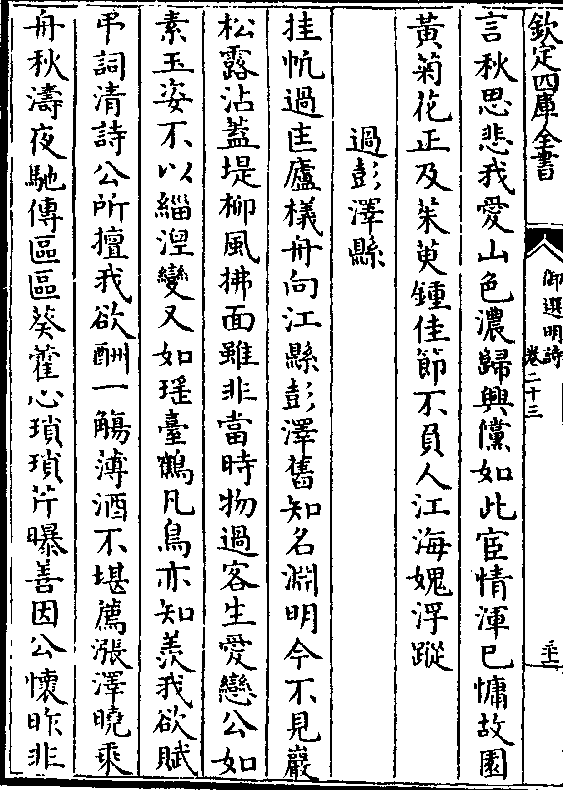 欽定四庫全書
御選明詩
卷二十三
言秋思悲我愛山色濃歸興儻如此宦情渾已慵故園
黃菊花正及茱萸鍾佳節不負人江海媿浮蹤
過彭澤縣
挂帆過匡廬檥舟向江縣彭澤舊知名淵明今不見巖
松露沾蓋堤柳風拂面雖非當時物過客生愛戀公如
素玉姿不以緇湼變又如瑤臺鶴凡鳥亦知羨我欲賦
弔詞清詩公所擅我欲酬一觴薄酒不堪薦漲澤曉乘
舟秋濤夜馳傳區區葵藿心瑣瑣芹曝善因公懷昨非